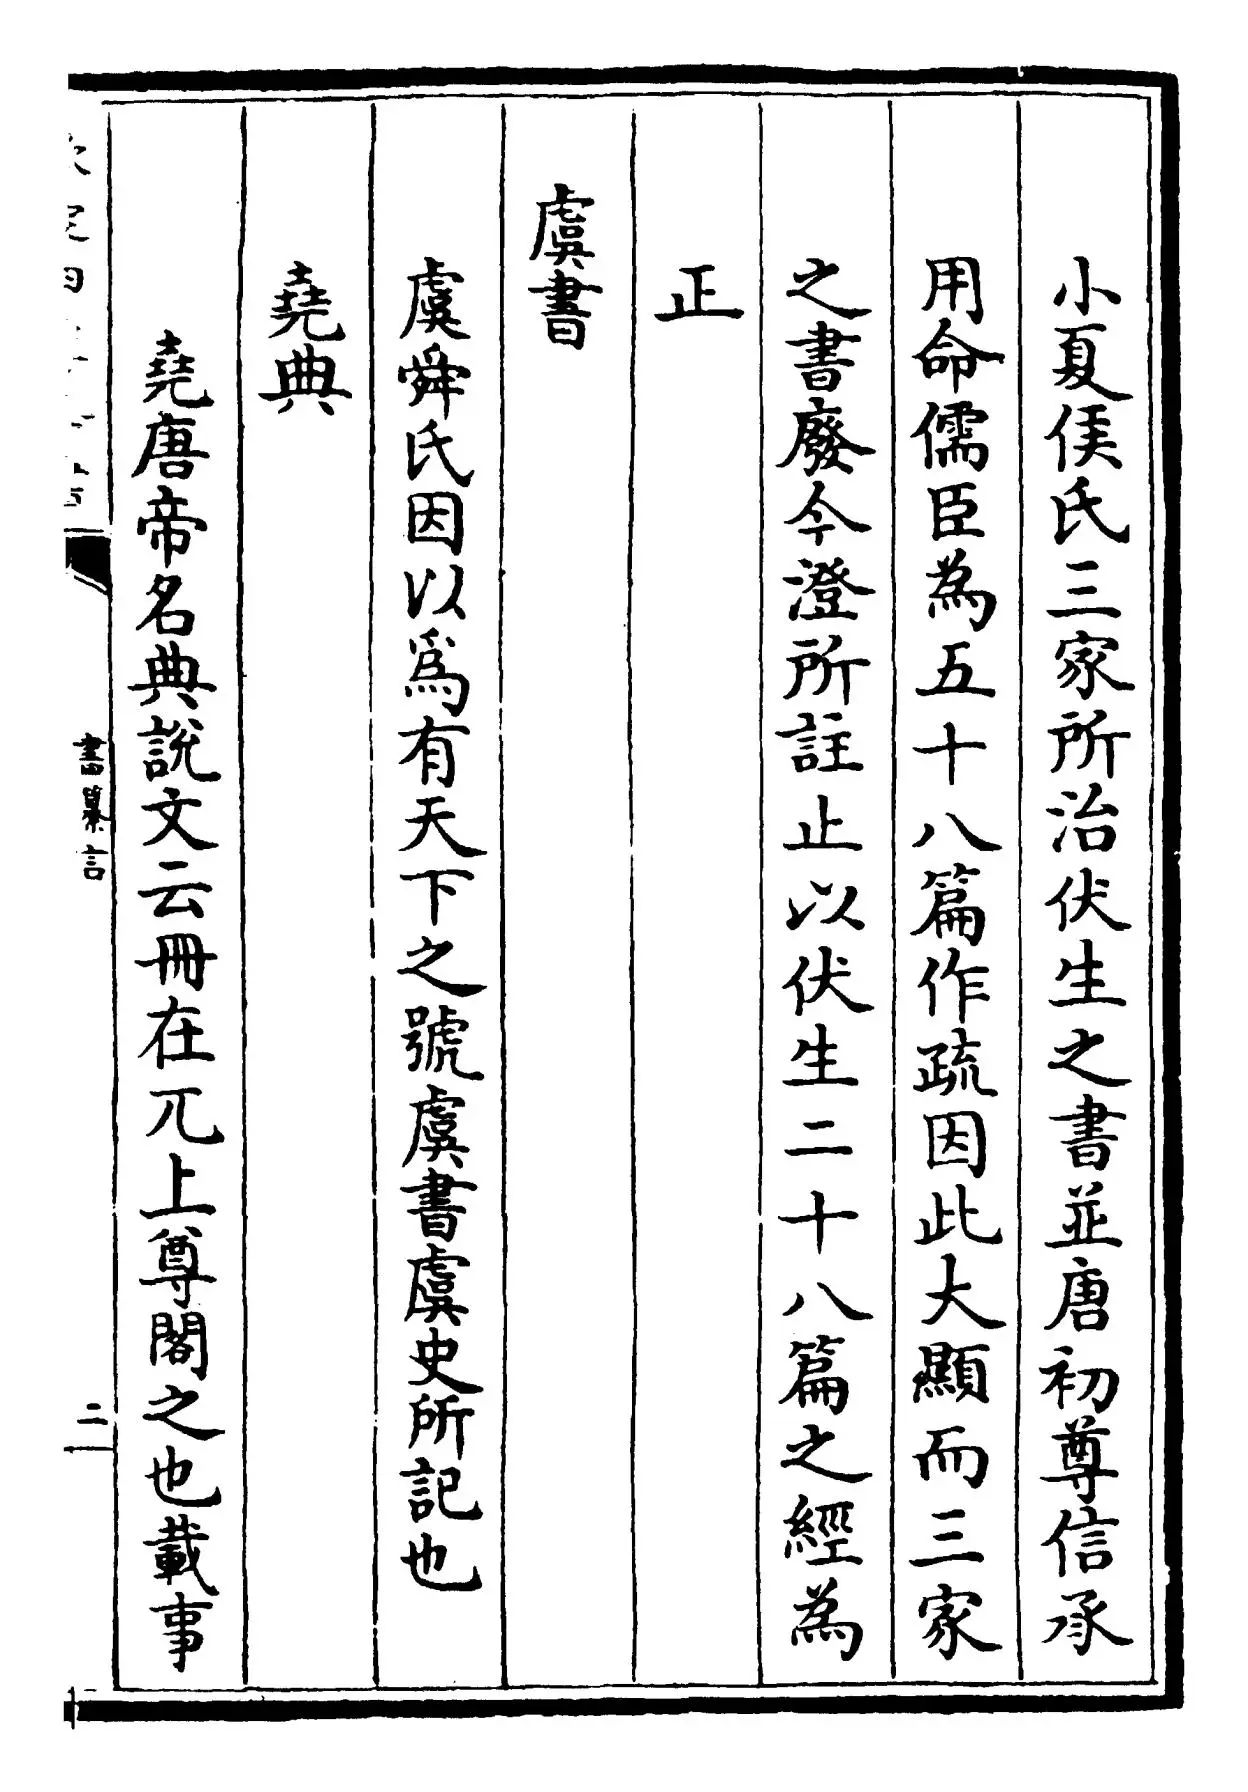 小夏侯氏三家所治伏生之書並唐初尊信承
用命儒臣為五十八篇作疏因此大顯而三家
之書廢今澄所註止以伏生二十八篇之經為
正
虞書
虞舜氏因以爲有天下之號虞書虞史所記也
堯典
堯唐帝名典說文云冊在丌上尊閣之也載事
書纂言
二